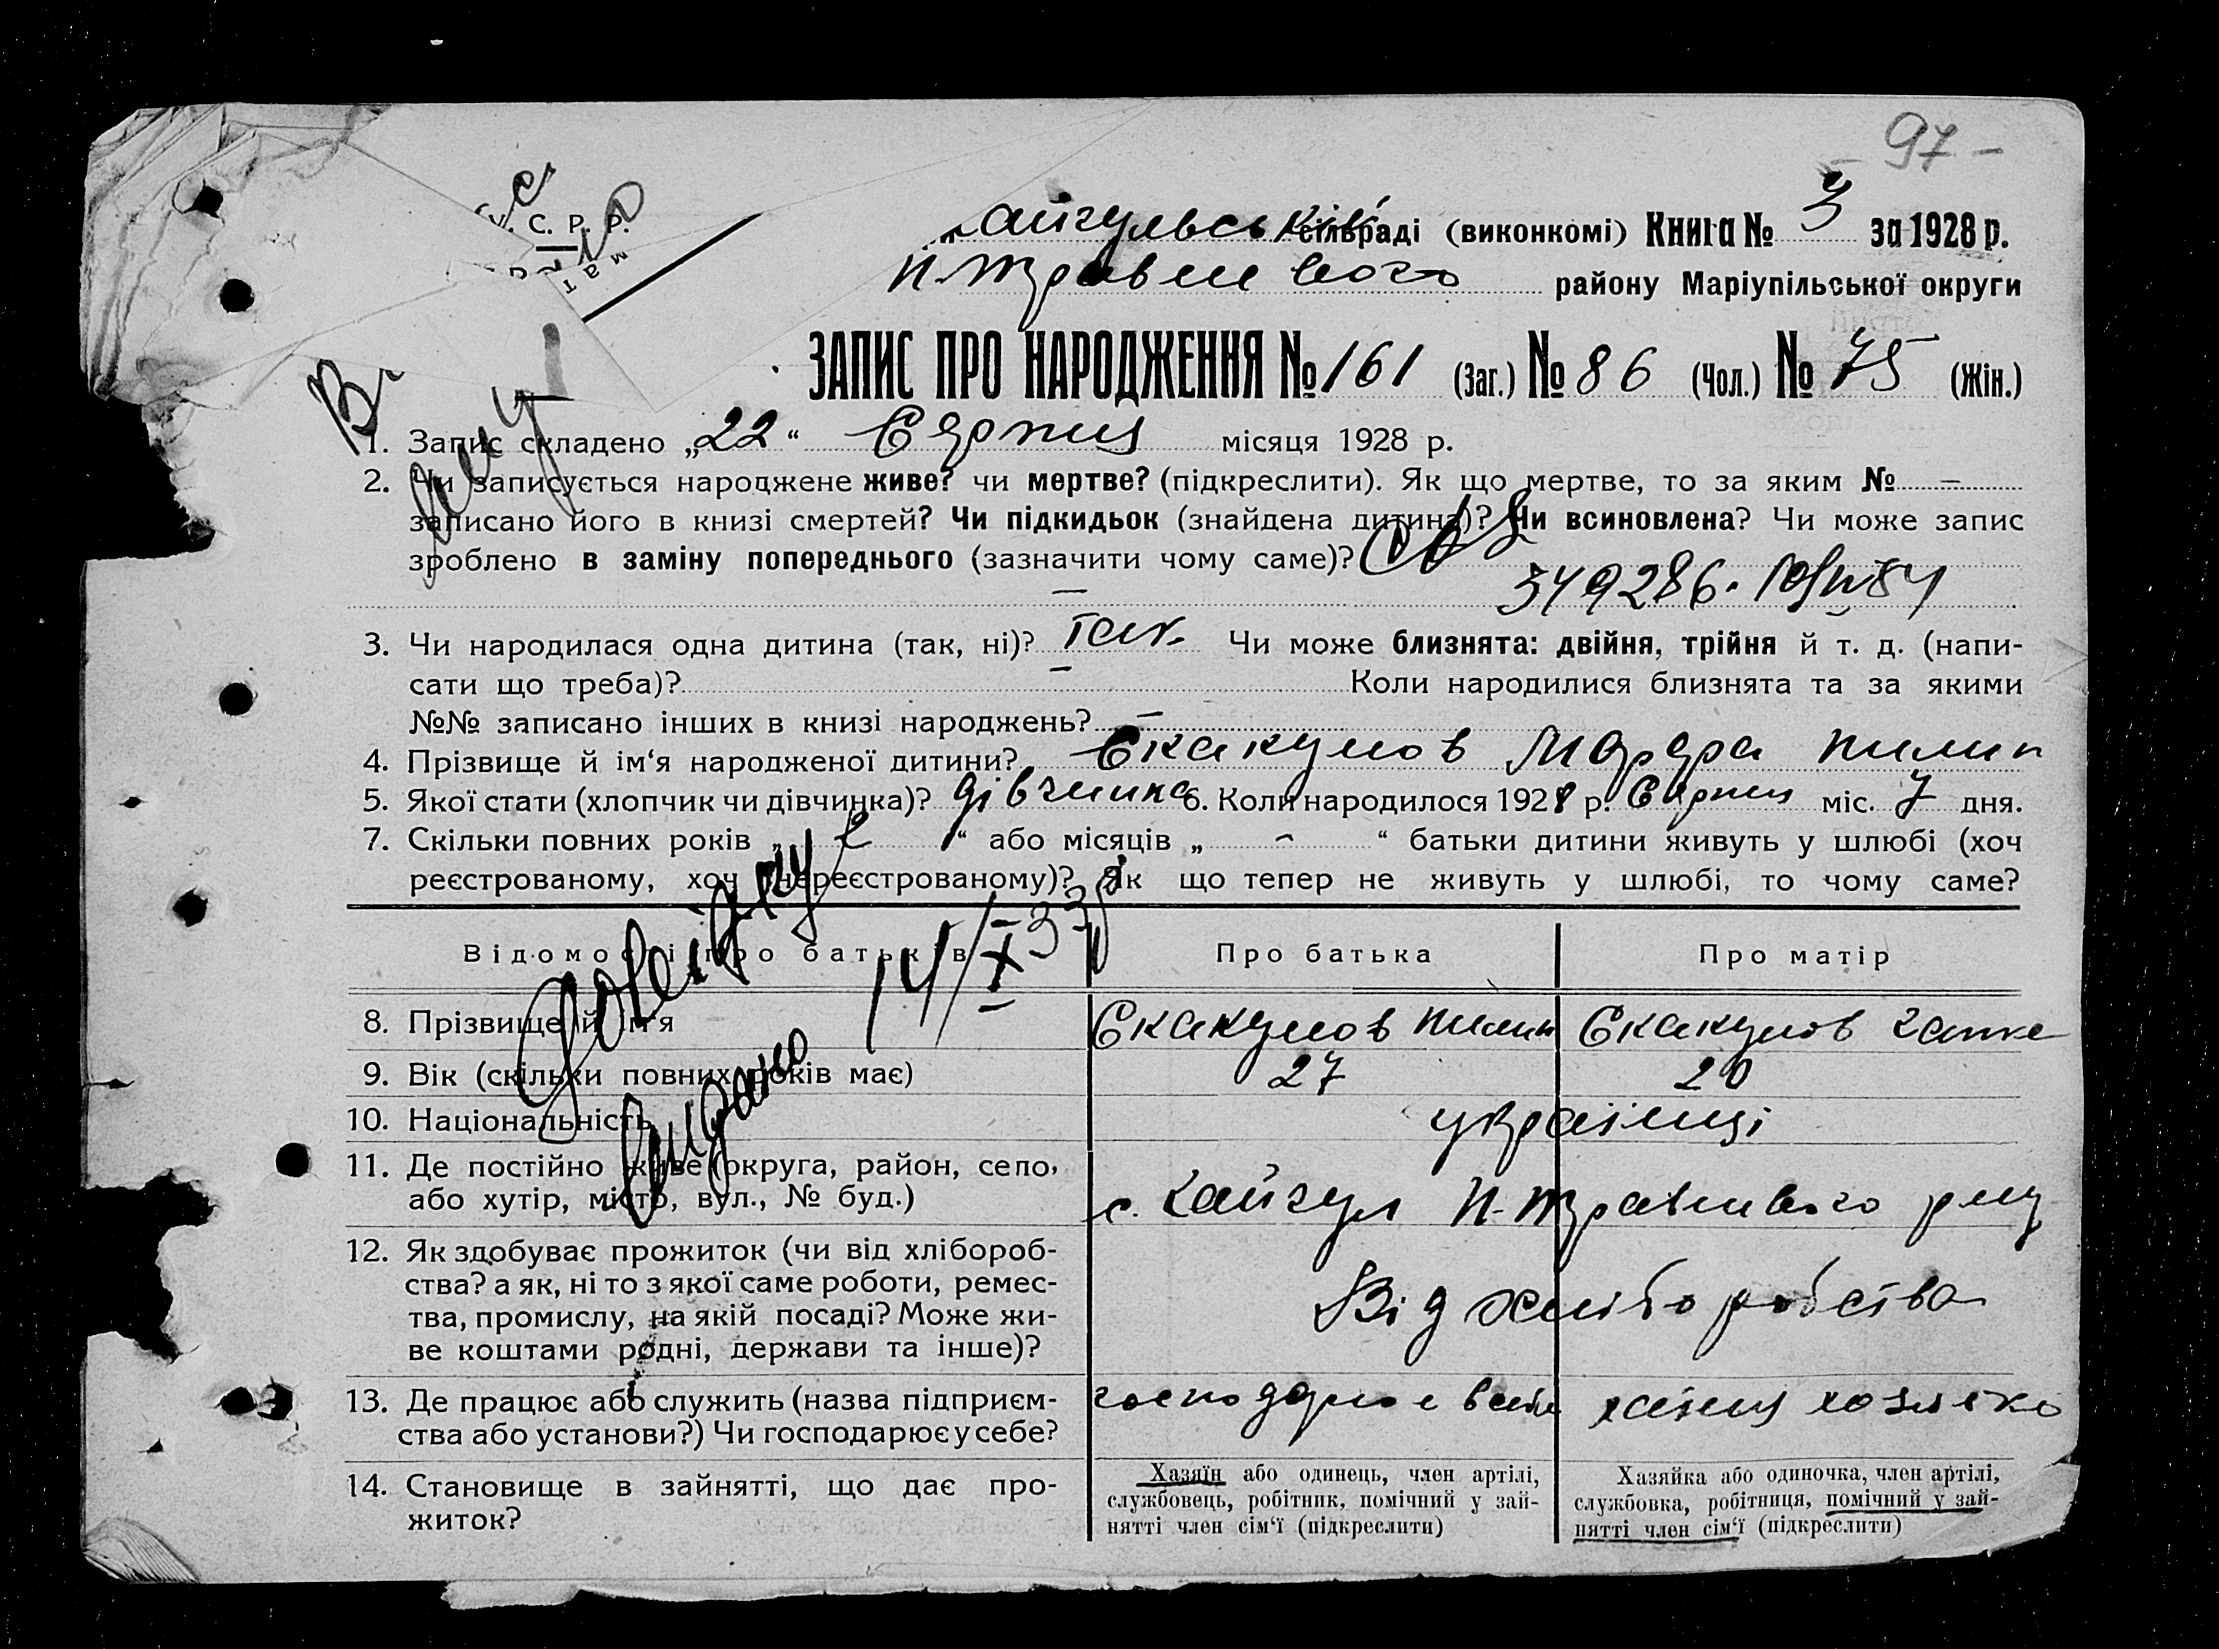 - 97 -
С. Р. Р.
сільраді (виконкомі) Книга № 3 за 1928 р.
району Маріупільської округи
ЗАПИС ПРО НАРОДЖЕННЯ № 161 (Заг.) № 86 (Чол.) № 75 (Жін.)
1. Запис складено „22“ Серпня місяця 1928 р.
2. Чи записується народжене живе? чи мертве? (підкреслити). Як що мертве, то за яким № —
записано його в книзі смертей? Чи підкидьок (знайдена дитина)? Чи всиновлена? Чи може запис
зроблено в заміну попереднього (зазначити чому саме)?
—
3. Чи народилася одна дитина (так, ні)? Так. Чи може близнята: двійня, трійня й т. д. (напи-
сати що треба)? — Коли народилися близнята та за якими
№№ записано інших в книзі народжень? —
4. Прізвище й ім‘я народженої дитини? Скакунов Пилип
5. Якої стати (хлопчик чи дівчинка)? дівчинка 6. Коли народилося 1928 р. Серпня міс. 7 дня.
7. Скільки повних років „ 2 “ або місяців „ - “ батьки дитини живуть у шлюбі (хоч
реєстрованому, хоч нереєстрованому)? Як що тепер не живуть у шлюбі, то чому саме?
Відомості про батьків
Про батька
Про матір
8. Прізвище й ім‘я
Скакунов Пилип
Скакунов
9. Вік (скільки повних років має)
27
20
10. Національність
українці
11. Де постійно живе (округа, район, село,
або хутір, місто, вул., № буд.)
с. Кайгул
12. Як здобуває прожиток (чи від хлібороб-
ства? а як, ні то з якої саме роботи, ремес-
тва, промислу, на якій посаді? Може жи-
ве коштами родні, держави та інше)?
Від хліборобства
13. Де працює або служить (назва підприєм-
ства або установи?) Чи господарює у себе?
14. Становище в зайнятті, що дає про-
житок?
Хазяїн або одинець, член артілі,
службовець, робітник, помічний у зай-
нятті член сім‘ї (підкреслити)
Хазяйка або одиночка, член артілі,
службовка, робітниця, помічний у зай-
нятті член сім‘ї (підкреслити)
Видано